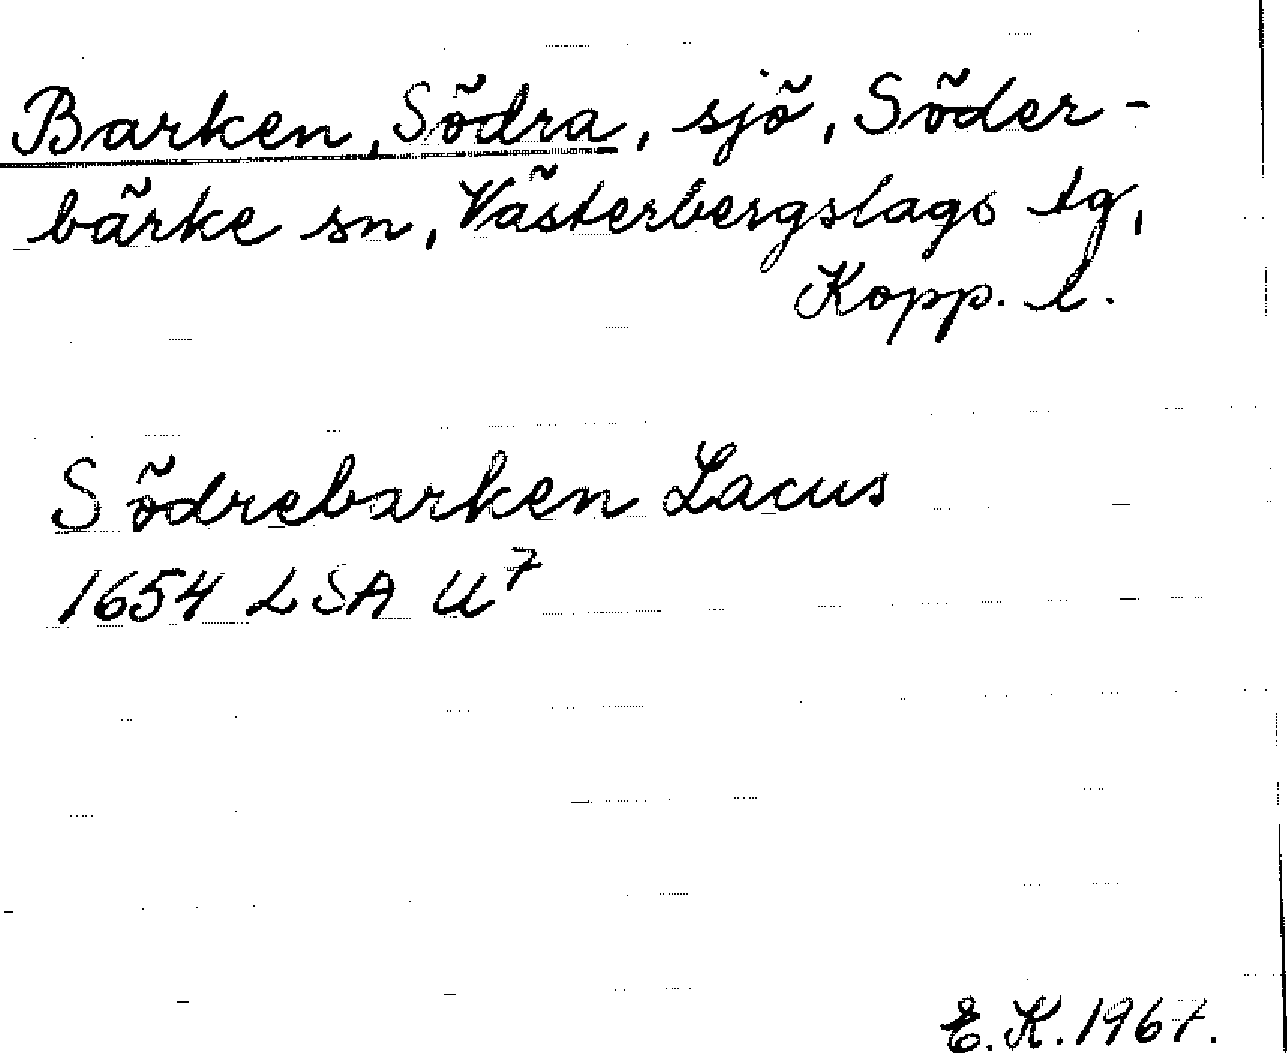 Barken, Södra, sjö, Söder-
bärke sn, Västerbergslags tg,
Kopp. l.
Södrebarken Lacus
1654 LSA U⁷
E.K. 1967.